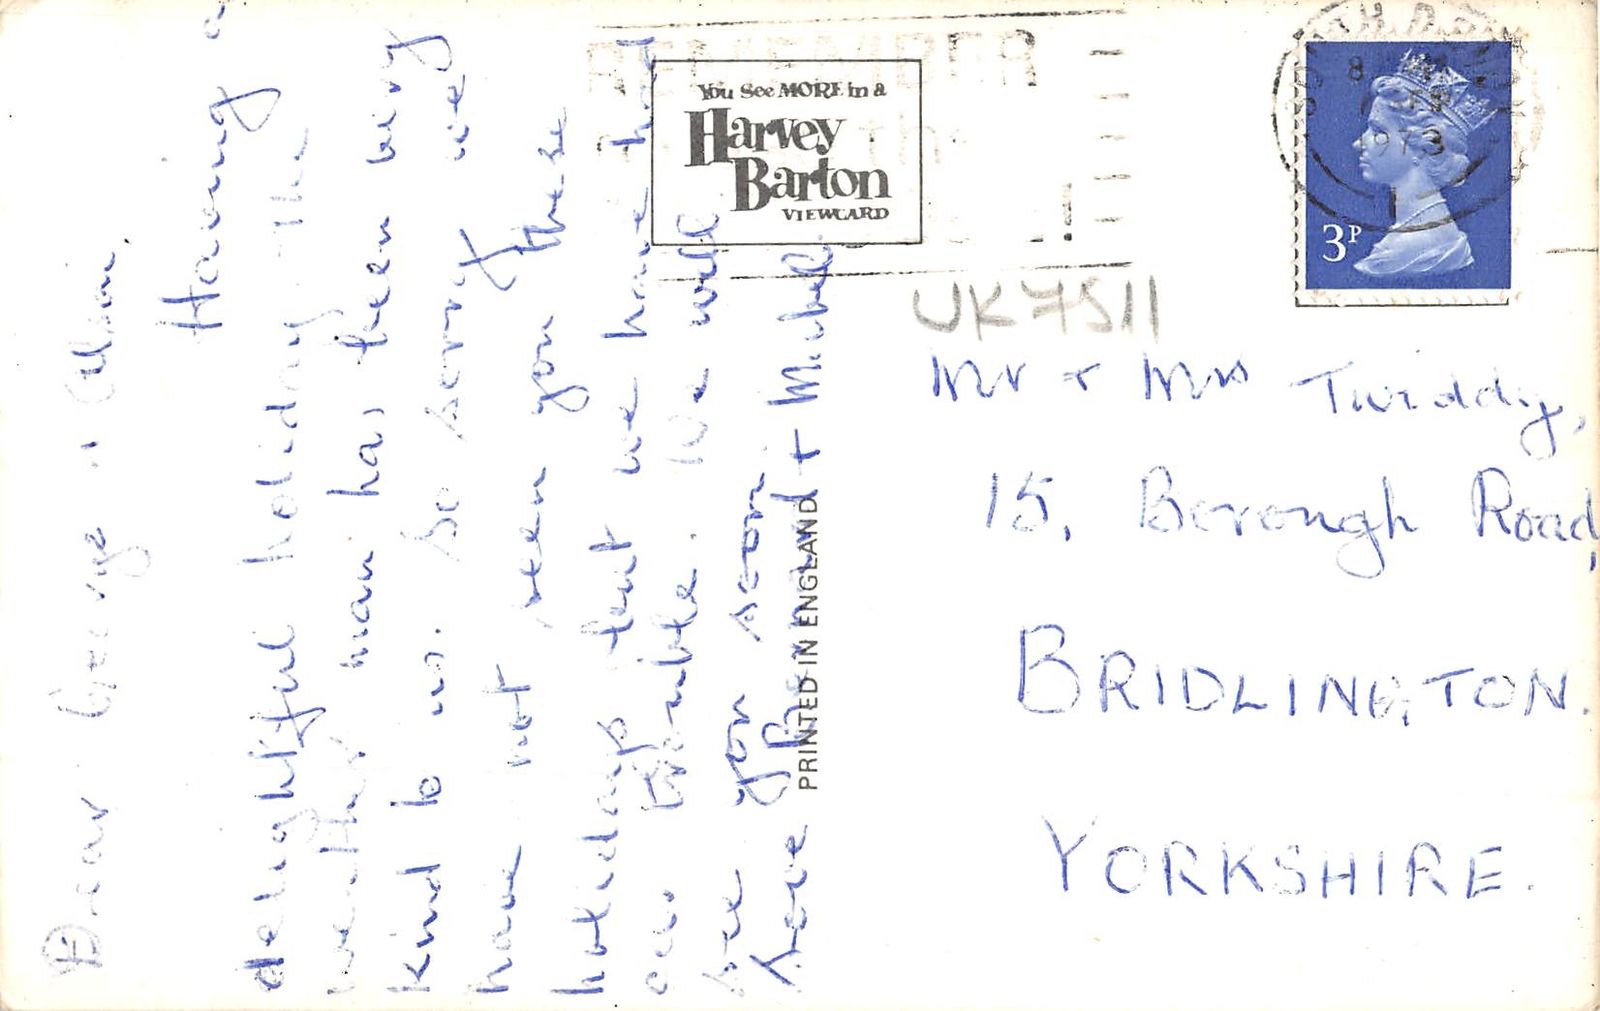 Dear George
Having a
delightful holiday. The
weather man has been very
kind to us. So sorry we
have not seen you these
holidays but we have had
our troubles. We will
see you soon
Love Bernard + Mabel.
PRINTED IN ENGLAND
You See MORE in a
Harvey
Barton
VIEWCARD
REMEMBER
1973
3P
UK7511
Mr + Mrs Twiddy,
15, Borough Road,
BRIDLINGTON.
YORKSHIRE.